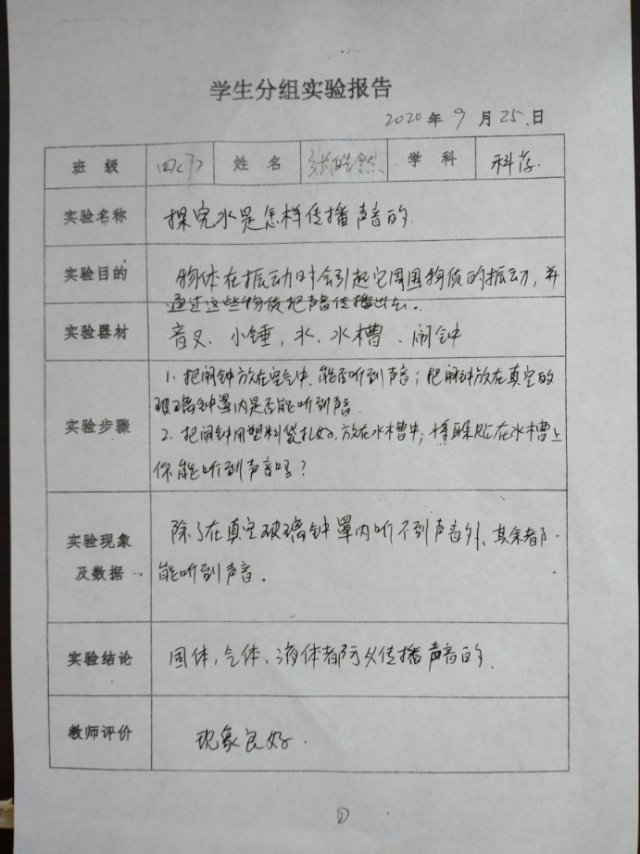 学生分组实验报告
2020年9月25日
班级 四(7) 姓名 张皓然 学科 科学
实验名称 探究水是怎样传播声音的.
实验目的 物体在振动时会引起它周围物质的振动,并
通过这些物质把声音传播出去。
实验器材 音叉、小锤,水、水槽、闹钟
实验步骤 1、把闹钟放在空气中、能否听到声音;把闹钟放在真空的
玻璃钟罩内是否能听到声音.
2、把闹钟用塑料袋扎好,放在水槽中;将耳朵贴在水槽上
你能听到声音吗?
实验现象及数据 除了在真空玻璃钟罩内听不到声音外、其余都
能听到声音.
实验结论 固体,气体、液体都可以传播声音的.
教师评价 现象良好.